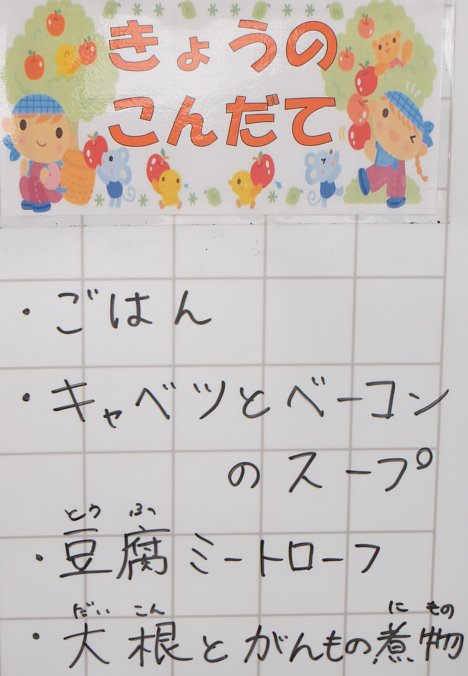 きょうの
こんだて
・ごはん
・キャベツとベーコン
のスープ
とうふ
・豆腐ミートローフ
だいこん にもの
・大根とがんもの煮物